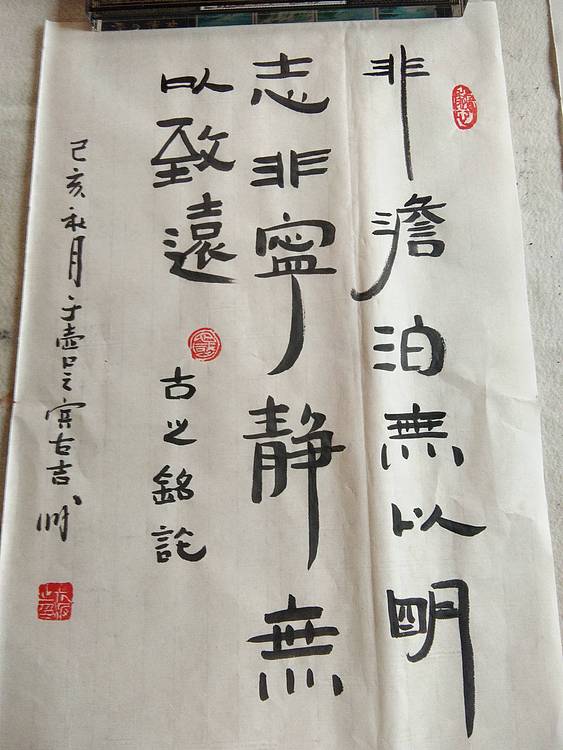 非澹泊無以明
志非寧静無
以致遠
古之銘
己亥秋月于壺口之古吉州